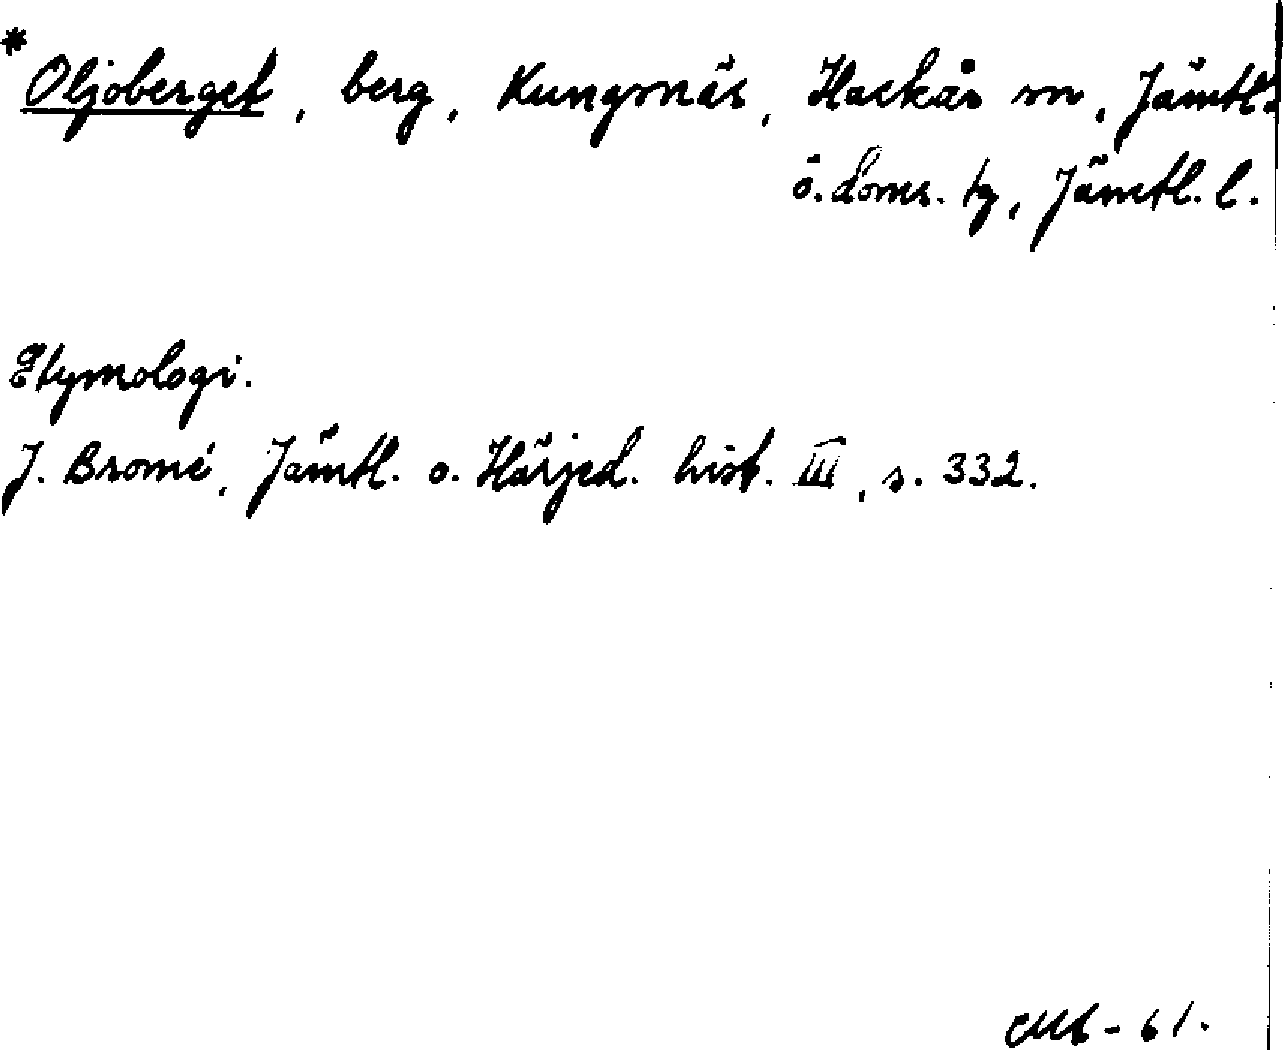 * Oljoberget, berg, Kungsnäs, Hackås sn, Jämtl.
ö. doms. tg, Jämtl. l.
Etymologi.
J. Bromé, Jämtl. o. Härjed. hist. III, s. 332.
-61.